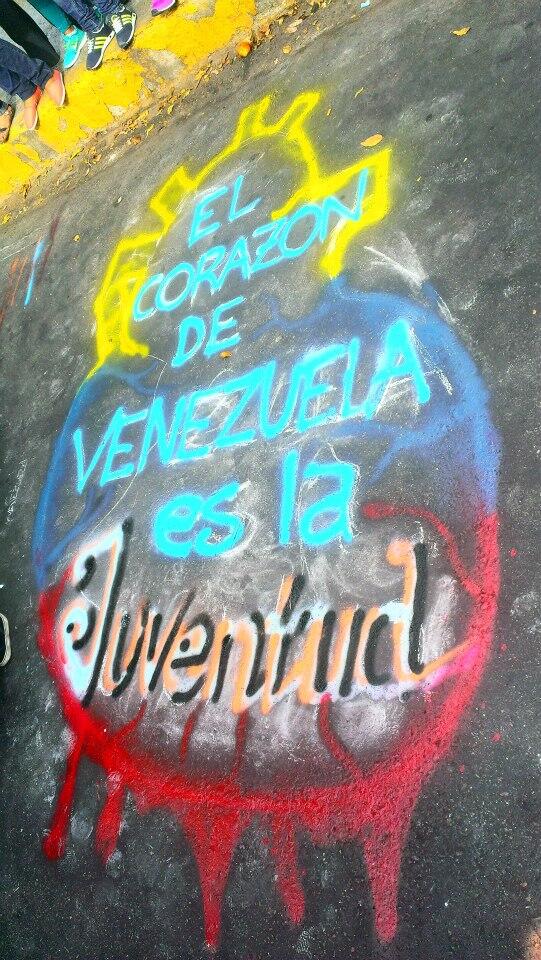 EL
CORAZON
DE
VENEZUELA
es la
Juventud